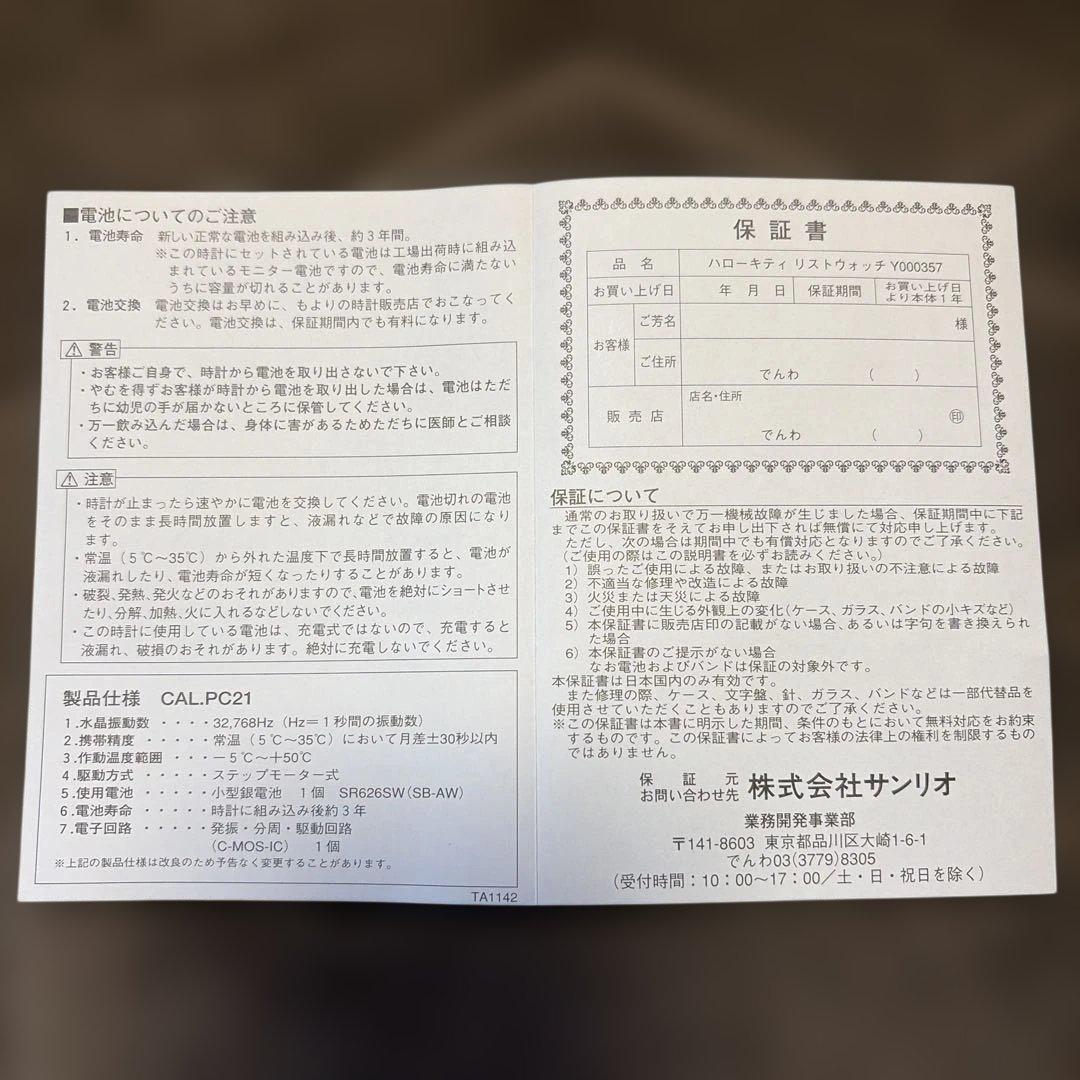 ■電池についてのご注意
1．電池寿命　新しい正常な電池を組み込み後、約3年間。
※この時計にセットされている電池は工場出荷時に組み込
まれているモニター電池ですので、電池寿命に満たない
うちに容量が切れることがあります。
2．電池交換　電池交換はお早めに、もよりの時計販売店でおこなってく
ださい。電池交換は、保証期間内でも有料になります。
⚠ 警告
・お客様ご自身で、時計から電池を取り出さないで下さい。
・やむを得ずお客様が時計から電池を取り出した場合は、電池はただ
ちに幼児の手が届かないところに保管してください。
・万一飲み込んだ場合は、身体に害があるためただちに医師とご相談
ください。
⚠ 注意
・時計が止まったら速やかに電池を交換してください。電池切れの電池
をそのまま長時間放置しますと、液漏れなどで故障の原因になり
ます。
・常温（5℃〜35℃）から外れた温度下で長時間放置すると、電池が
液漏れしたり、電池寿命が短くなったりすることがあります。
・破裂、発熱、発火などのおそれがありますので、電池を絶対にショートさせ
たり、分解、加熱、火に入れるなどしないでください。
・この時計に使用している電池は、充電式ではないので、充電すると
液漏れ、破損のおそれがあります。絶対に充電しないでください。
製品仕様　CAL.PC21
1.水晶振動数 ・・・・32,768Hz（Hz＝1秒間の振動数）
2.携帯精度 ・・・・・常温（5℃〜35℃）において月差±30秒以内
3.作動温度範囲 ・・・－5℃〜＋50℃
4.駆動方式 ・・・・・ステップモーター式
5.使用電池 ・・・・・小型銀電池　1個　SR626SW（SB-AW）
6.電池寿命 ・・・・・時計に組み込み後約3年
7.電子回路 ・・・・・発振・分周・駆動回路
（C-MOS-IC）　1個
※上記の製品仕様は改良のため予告なく変更することがあります。
TA1142
保証書
品名　ハローキティ リストウォッチ Y000357
お買い上げ日　年　月　日　保証期間　お買い上げ日
より本体1年
お客様　ご芳名　様
ご住所
でんわ　（　）
販売店　店名・住所
㊞
でんわ　（　）
保証について
通常のお取り扱いで万一機械故障が生じました場合、保証期間中に下記
までこの保証書をそえてお申し出下されば無償にて対応申し上げます。
ただし、次の場合は期間中でも有償対応となりますのでご了承ください。
（ご使用の際はこの説明書を必ずお読みください。）
1）誤ったご使用による故障、またはお取り扱いの不注意による故障
2）不適当な修理や改造による故障
3）火災または天災による故障
4）ご使用中に生じる外観上の変化（ケース、ガラス、バンドの小キズなど）
5）本保証書に販売店印の記載がない場合、あるいは字句を書き換えられ
た場合
6）本保証書のご提示がない場合
なお電池およびバンドは保証の対象外です。
本保証書は日本国内のみ有効です。
また修理の際、ケース、文字盤、針、ガラス、バンドなどは一部代替品を
使用させていただくこともありますのでご了承ください。
※この保証書は本書に明示した期間、条件のもとにおいて無料対応をお約束
するものです。この保証書によってお客様の法律上の権利を制限するもの
ではありません。
保証元
お問い合わせ先　株式会社サンリオ
業務開発事業部
〒141-8603 東京都品川区大崎1-6-1
でんわ03(3779)8305
（受付時間：10：00〜17：00／土・日・祝日を除く）